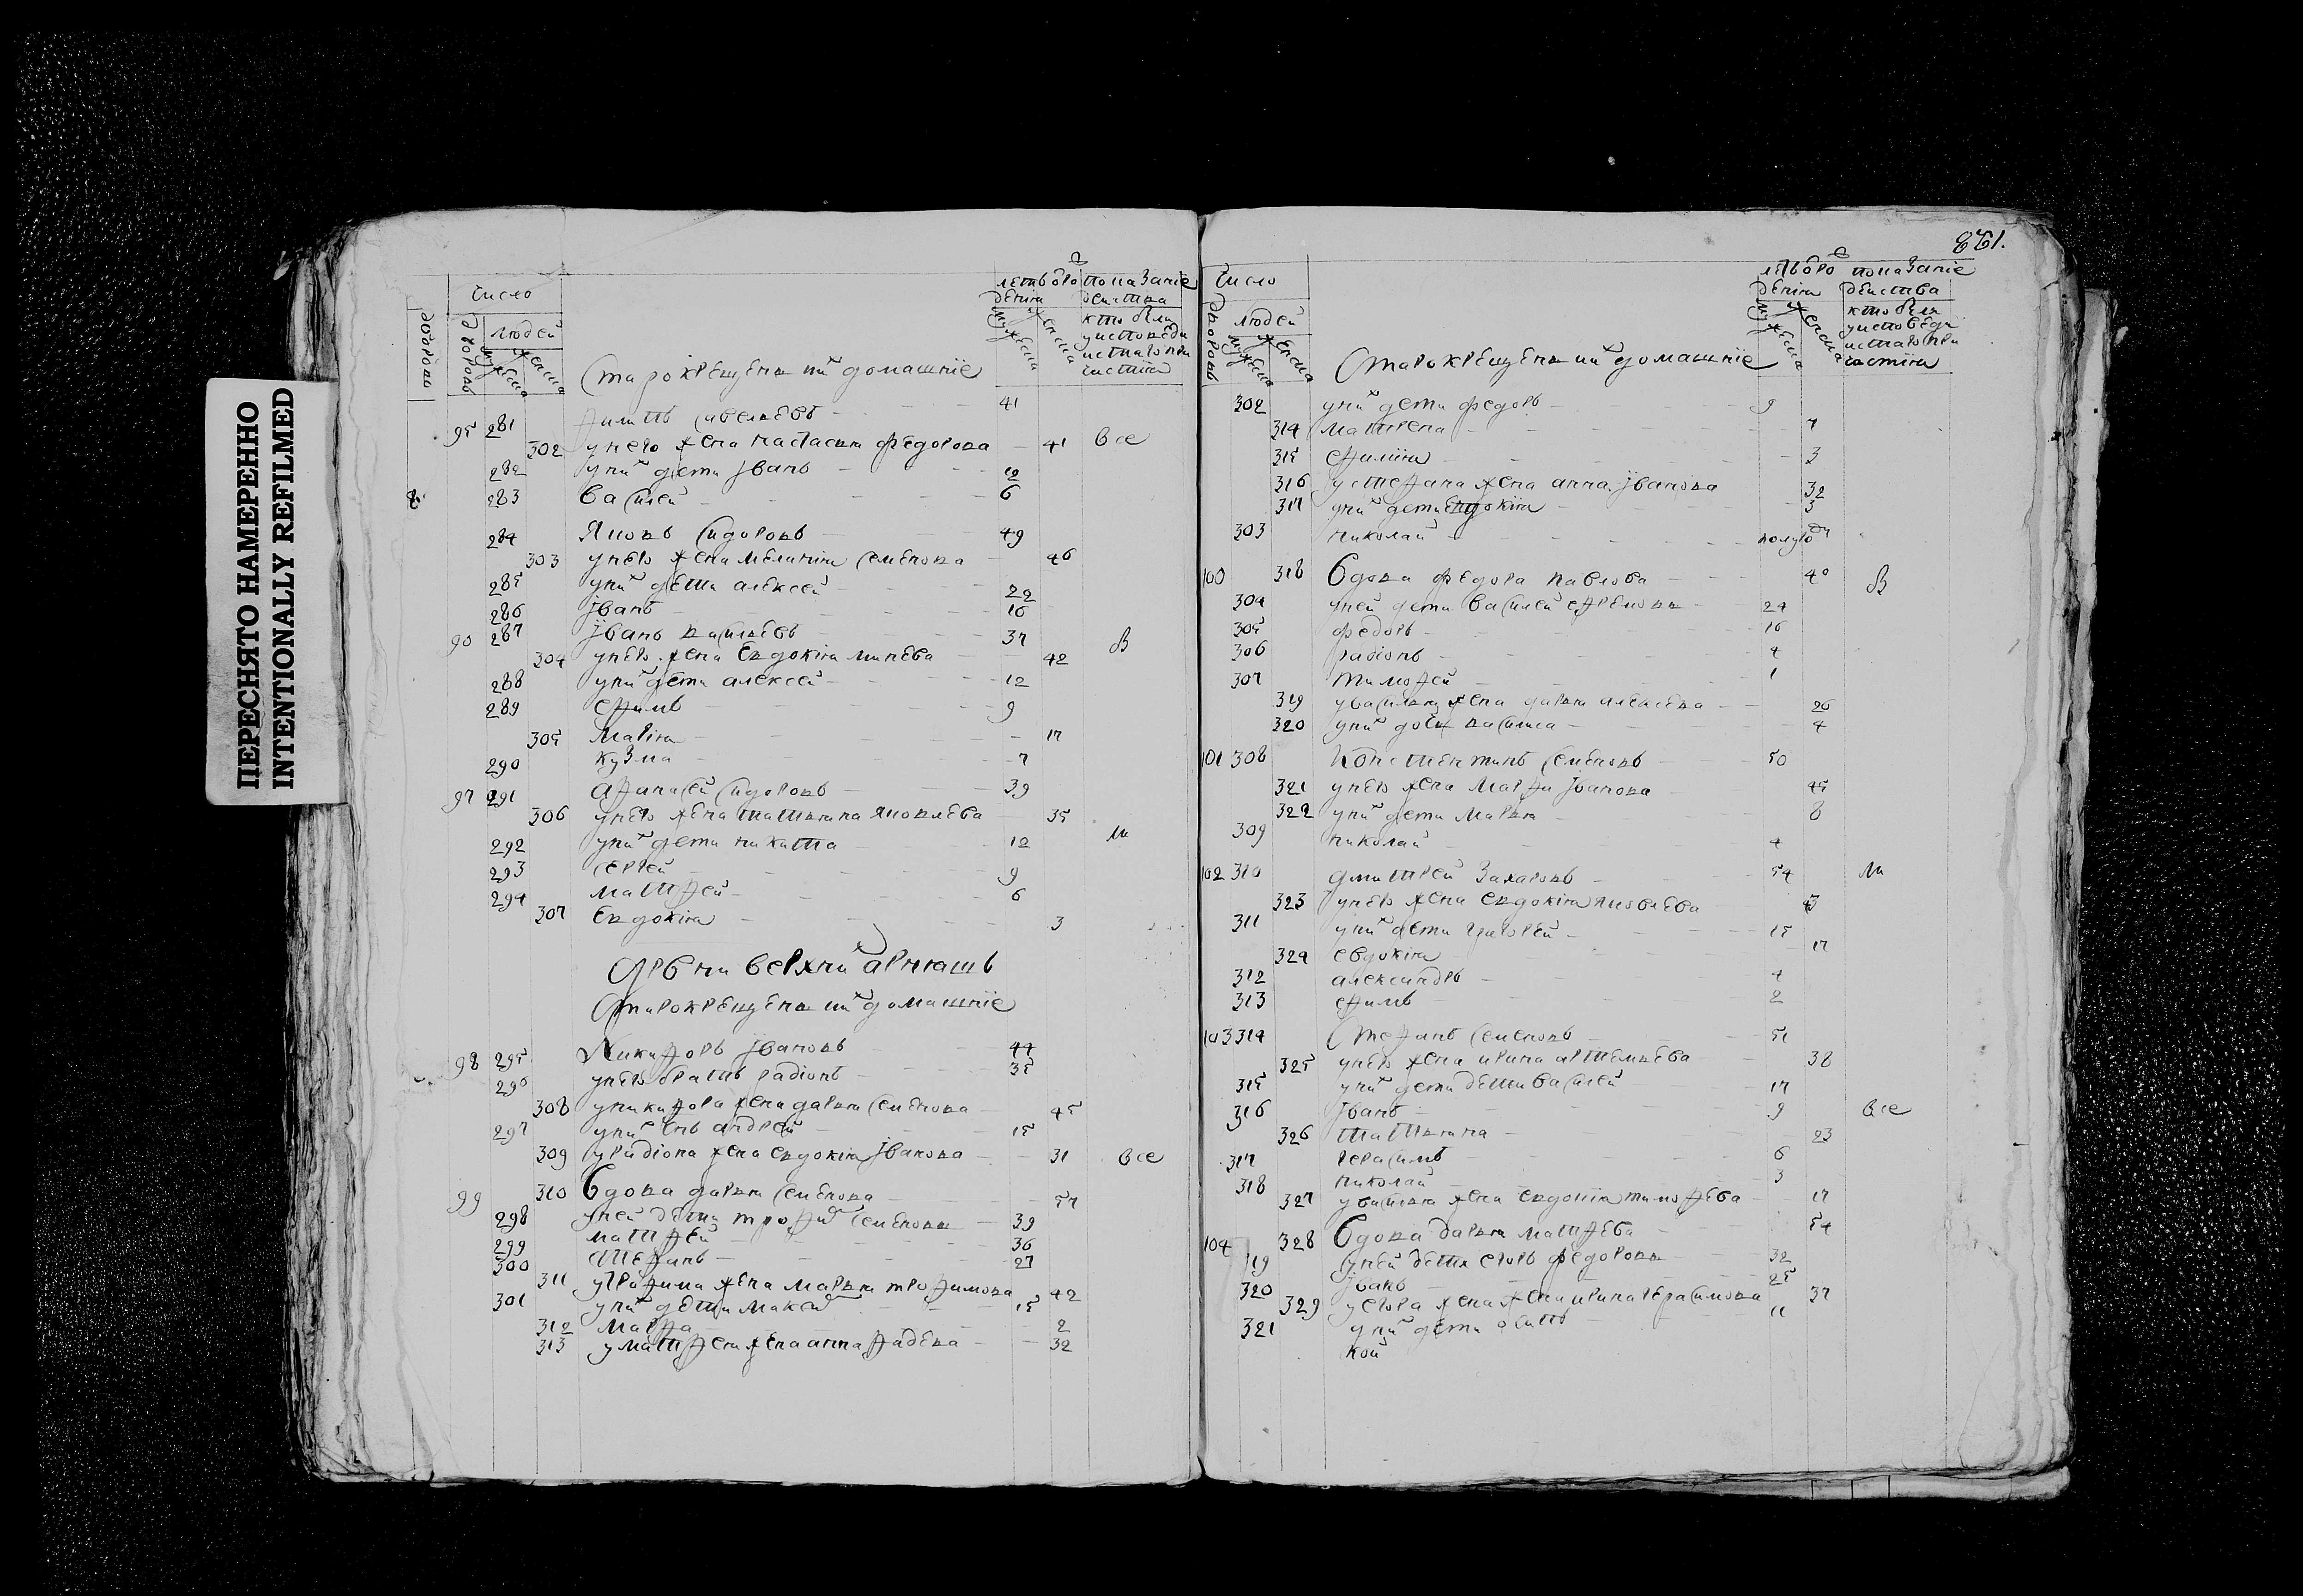 ПЕРЕСНЯТО НАМЕРЕННО
INTENTIONALLY REFILMED
число
людей
дворовъ
мужеска
женска
летъ врождения
мужеска
женска
показание действа кто были у исповеди и с таго причастия
Старокрещены ихъ домашніе
95 281 Филипъ Савельевъ 41
302 у него жена настасья федорова 41 все
282 у нихъ дети Іванъ 12
283 василей 6
284 Яковъ Сидоровъ 49
303 у него жена меланія Семенова 46
285 у нихъ дети алексей 22
286 Іванъ 16
90 287 Іванъ васильевъ 37 в
304 у него жена Евдокія минеева 42
288 у нихъ дети алексей 12
289 ефимъ 9
305 Марія 17
290 кузма 7
97 291 афанасей Сидоровъ 39
306 у него жена татьяна яковлева 35
292 у нихъ дети никита 12 м
293 сергей 9
294 матфей 6
307 Евдокія 3
дрвни верхни арняшъ
Старокрещены ихъ домашніе
98 295 Никифоръ Івановъ 44
296 у него братъ радіонъ 35
308 у никифора жена дарья Семенова 45
297 у нихъ снъ андрей 15
309 у радіона жена евдокія Іванова 31 все
99 310 вдова дарья Семенова 57
298 у ней дети трофимъ Семеновы 39
299 матфей 36
300 Степанъ 27
311 у трофима жена марья трофимова 42
301 у нихъ дети максимъ 15
312 марфа 2
313 у матфея жена анна фадеева 32
861.
число
людей
дворовъ
мужеска
женска
летъ врождения
мужеска
женска
показание действа кто были у исповеди и с таго причастия
Старокрещены ихъ домашніе
302 у нихъ дети федоръ 9
314 матрена 7
315 ефимія 3
316 у степана жена анна Іванова 32
317 у нихъ дети Евдокія 3
303 николай полугоду
100 318 вдова федора павлова 40 в
304 у ней дети василей ефремовы 24
305 федоръ 16
306 радіонъ 4
307 тимофей 1
319 у василья жена дарья алексеева 26
320 у нихъ дочь васиlиса 4
101 308 Константинъ Семеновъ 50
321 у него жена Марфа Іванова 45
322 у нихъ дети Марья 8
309 николай 4
102 310 дмитрей Захаровъ 54 м
323 у него жена евдокія яковлева 43
311 у нихъ дети григорей 15
324 евдокія 17
312 александръ 4
313 ефимъ 2
103 314 Степанъ Семеновъ 51
325 у него жена ирина артемьева 38
315 у нихъ дети дети василей 17
316 Іванъ 9 все
326 татьяна 23
317 герасимъ 6
318 николай 3
327 у василья жена евдокія тимофеева 17
104 328 вдова дарья матфеева 54
319 у ней дети егоръ федоровы 32
320 Іванъ 25
329 у егора жена жена ирина герасимова 37
321 у нихъ дети осипъ 11
кой